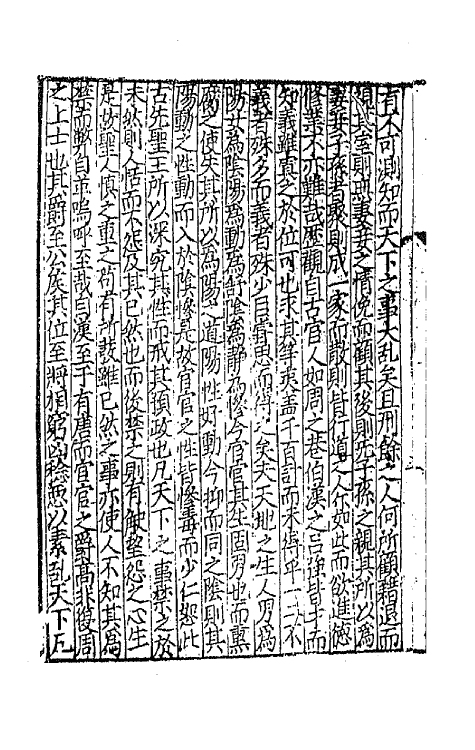 有不可測知而天下之事大亂矣且刑餘之人何所顧藉退而
顧其室則無妻妾之情俛而顧其後則無子孫之親其所以為
妻妾子孫者聚則成一家而散則皆行道之人尓如此而欲進德
修業不亦難哉歷觀自古官人如周之巷伯漢之呂強其早而
知義雖寘之於位可也求其絆夷盖千百計而未得乎一二不
義者殊多而義者殊少目甞思而得之矣夫天地之生人男為
陽女為陰陽為動為舒陰為靜為慘今宦官其生固男也而熏
腐之使失其所以為陽之道陽性好動今抑而同之陰則其
陽動之性動而入於陰慘是故宦官之性皆慘毒而少仁恕此
古先聖王所以深究其性而戒其預政也凡天下之事禁之於
未然則人恬而不怨及其已然也而後禁之則有觖望怨之心生
是故聖人慎之重之苟有所發雖已然之事亦使人不知其為
禁而弊自革嗚呼至哉自漢至于有唐而宦官之爵高非復周
之上士也其爵至公矦其位至將相窮凶稔惡以紊亂天下凡